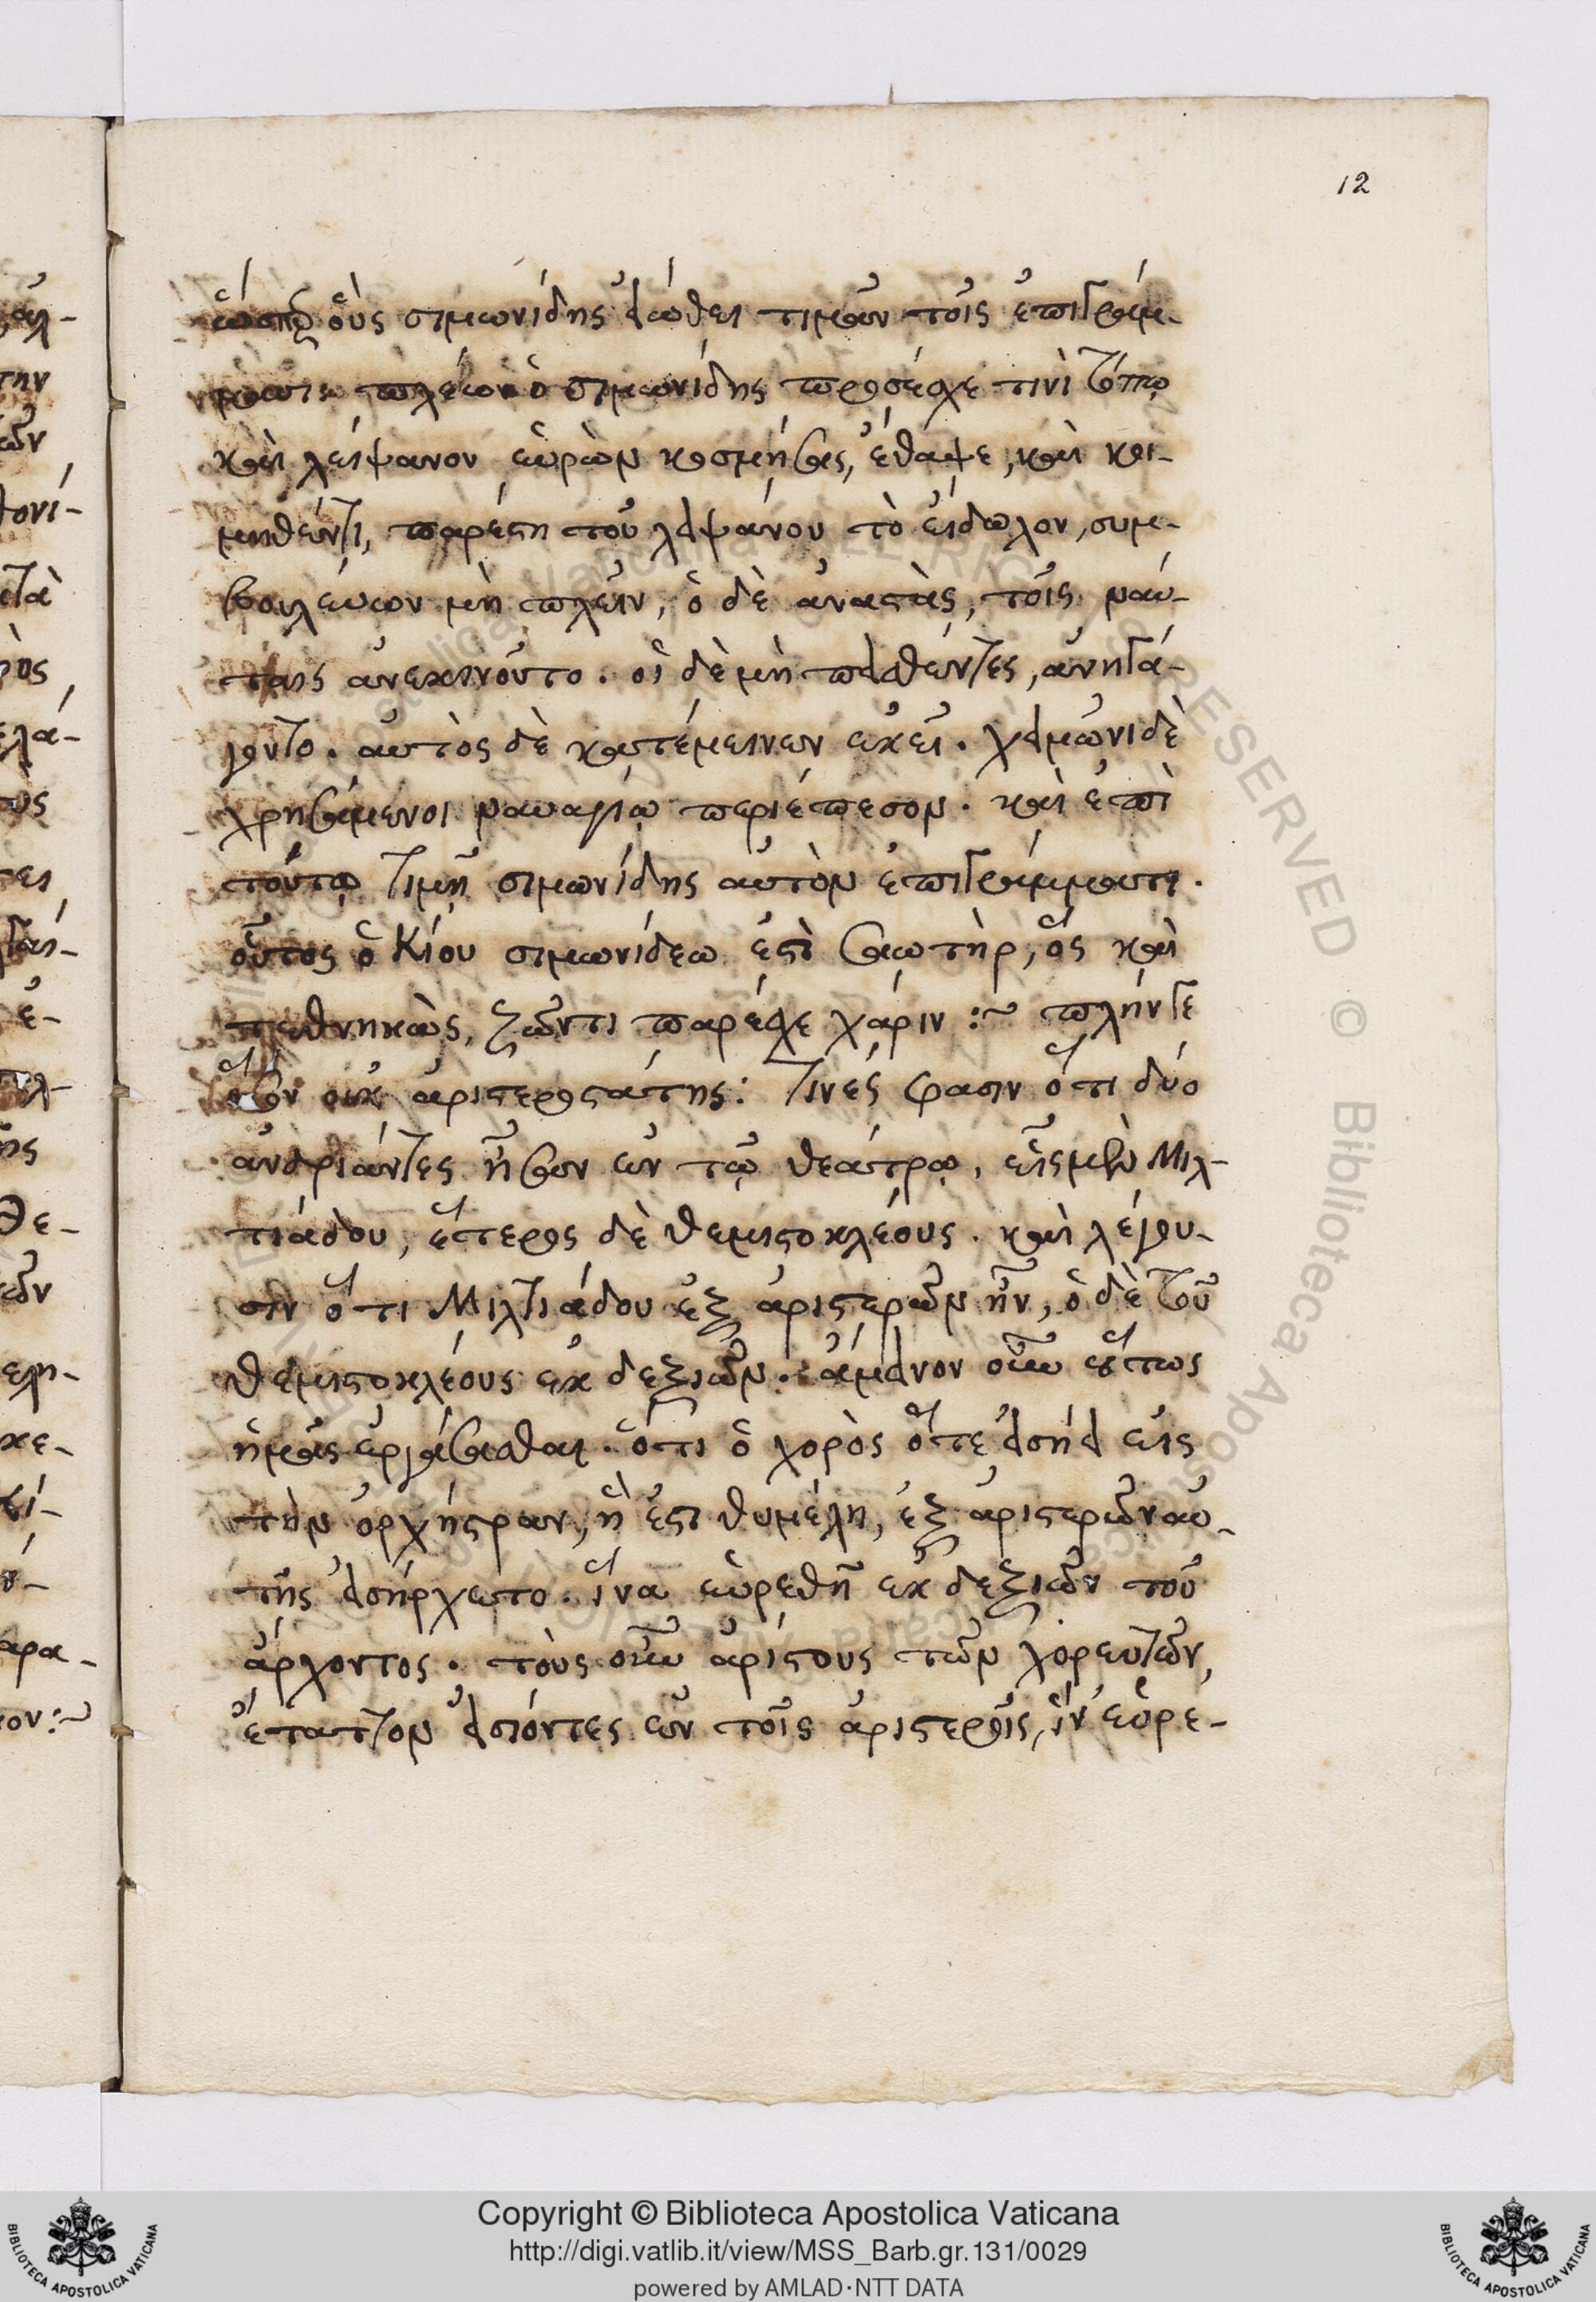 12
ὥσπερ οὓς σιμωνίδης εἰώθει τιμᾶν τοῖς ἐπιγράμ-
μασι. πλέων ὁ σιμωνίδης προσέσχε τινὶ τόπω
καὶ λείψανον εὑρὼν κοσμήσας, ἔθαψε, καὶ κοι-
μηθέντι, παρέστη τοῦ λειψάνου τὸ εἴδωλον, συμ-
βουλεύων μὴ πλεῖν, ὁ δὲ ἀναστὰς, τοῖς ναύ-
ταις ἀνεκοινοῦτο. οἱ δὲ μὴ πεισθέντες, ἀνηγά-
γοντο. αὐτὸς δὲ κατέμεινεν ἐκεῖ. χειμῶνι δὲ
χρησάμενοι ναυαγίω περιέπεσον. καὶ ἐπὶ
τούτω τιμῆ σιμωνίδης αὐτὸν ἐπιγράμματι.
οὗτος ὁ Κίου σιμωνίδεω ἐστὶ σωτὴρ, ὃς καὶ
τεθνηκὼς, ζῶντι παρέσχε χάριν :~ πλήν γε
ὅσον οὐκ ἀριστεροστάτης: Τινές φασιν ὅτι δύο
ἀνδριάντες ἦσαν ἐν τῶ θεάτρω, εἷς μὲν Μιλ-
τιάδου, ἕτερος δὲ θεμιστοκλέους. καὶ λέγου-
σιν ὅτι Μιλτιάδου ἐξ ἀριστερῶν ἦν, ὁ δὲ τοῦ
θεμιστοκλέους ἐκ δεξιῶν. ἄμεινον οὖν οὕτως
ἡμᾶς ἐργάσασθαι. ὅτι ὁ χορὸς ὅτε εἰσήει εἰς
τὴν ὀρχήστραν, ἥ ἐστι θυμέλη, ἐξ ἀριστερῶν αὐ-
τῆς εἰσήρχετο. ἵνα εὑρεθῆ ἐκ δεξιῶν τοῦ
ἄρχοντος. τοὺς οὖν ἀρίστους τῶν χορευτῶν,
ἔταττον εἰσιόντες ἐν τοῖς ἀριστεροῖς, ἵν' εὑρε-
Copyright © Biblioteca Apostolica Vaticana
http://digi.vatlib.it/view/MSS_Barb.gr.131/0029
powered by AMLAD·NTT DATA